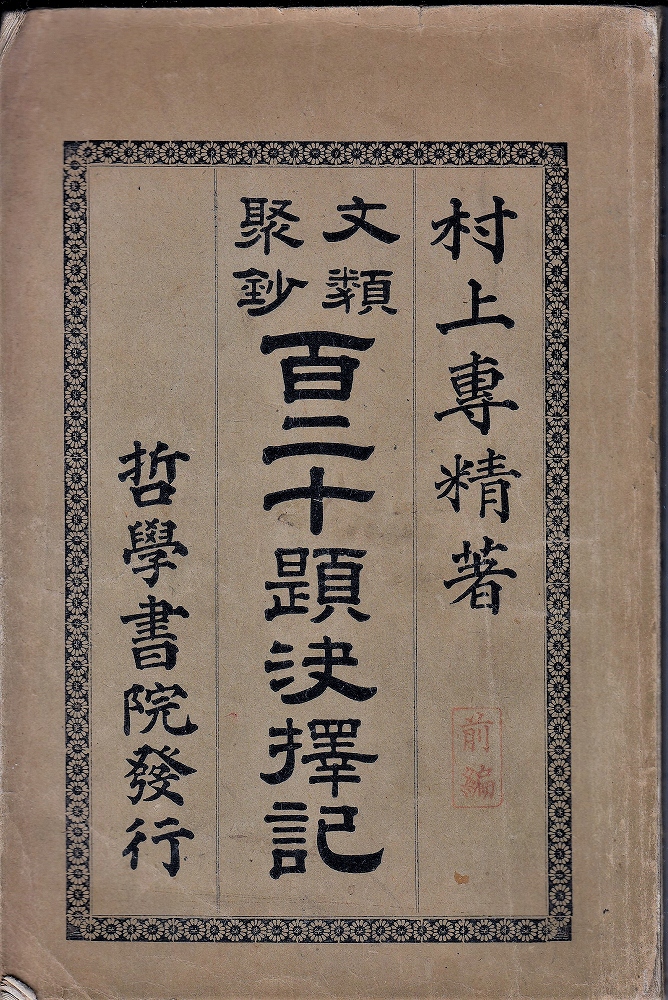 村上專精著
前編
文類
聚鈔
百二十題決擇記
哲學書院發行